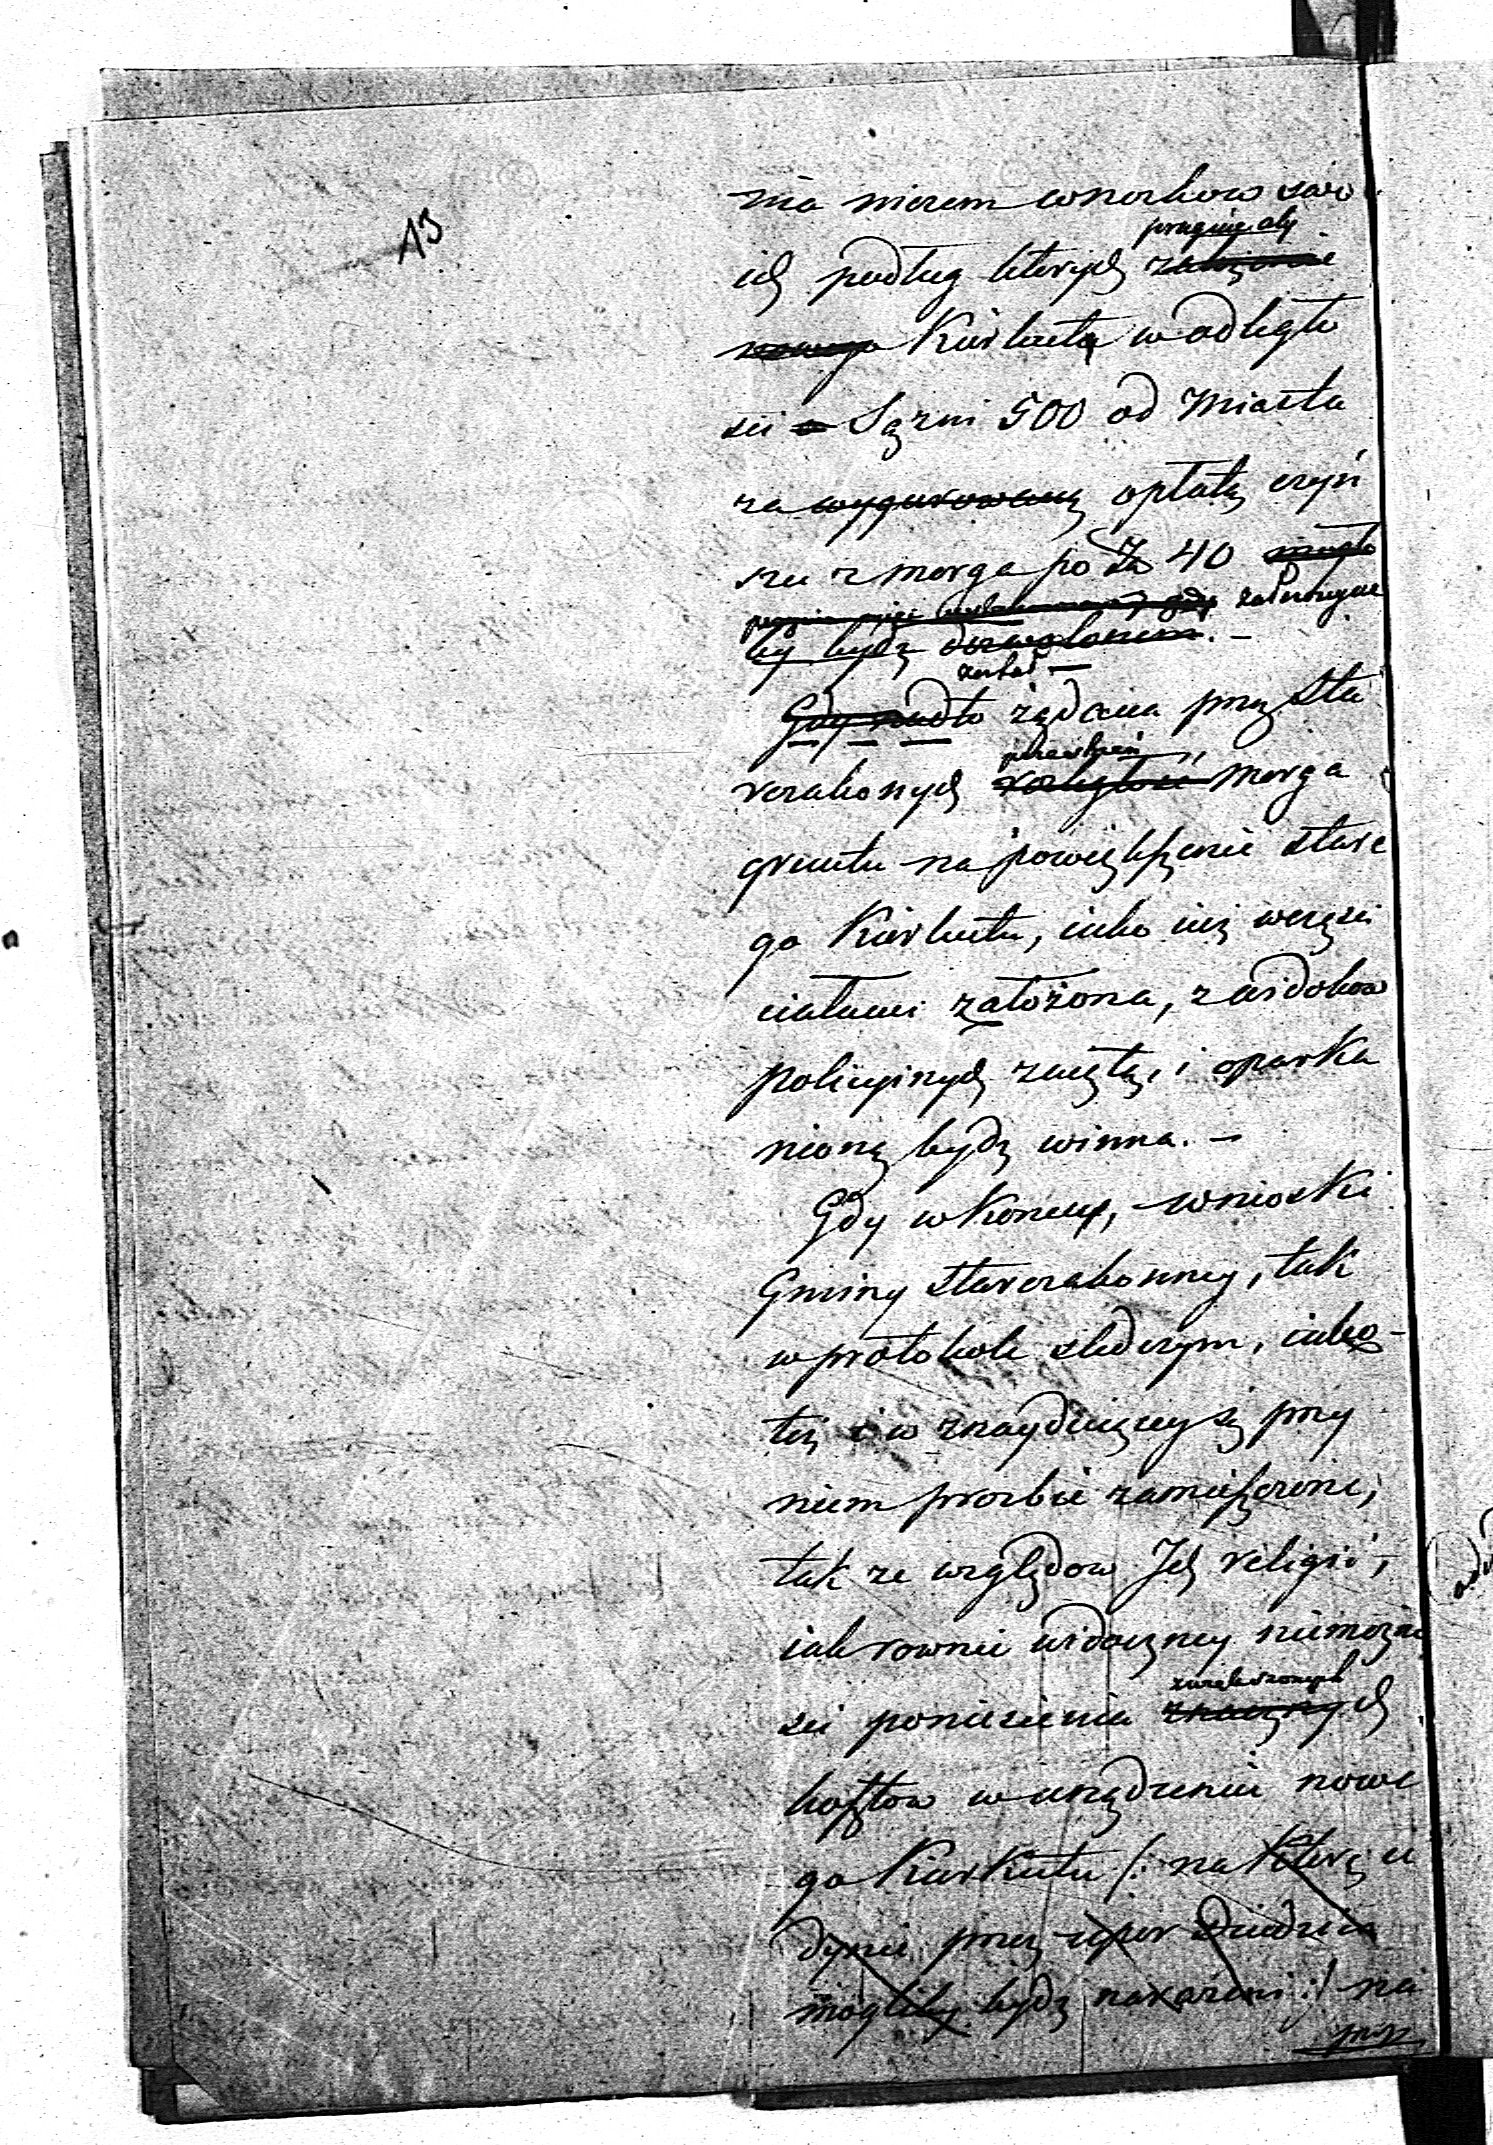 13
nia nierem wnorkow swo
ich podług których pragnie aby
Kirkuta w odległo
sci Sązni 500 od Miasta
za opłatą czyn
szu z morga po Zł 40
by bydz dozwolonem. –
Gdy nadto żądana przez Sta
rozakonnych morga
gruntu na powiększenie stare
go Kirkutu, iako iuż w części
ciałami założona, z widokow
policyinych zaiętą, i oparka
nioną bydz winna. –
Gdy w koncu, wnioski
Gminy Starozakonney, tak
w protokole sledczym, iako-
też i w znayduiącey się przy
niem prozbie zamieszczone,
tak ze względow Jch religii,
iak rownie widoczney niemożno
sci poniesienia znacznych
kosztow w urządzeniu nowe
go Kirkutu /: na które ie
dynie przez upor Dziedzica
mogliby bydz narażeni :/ na